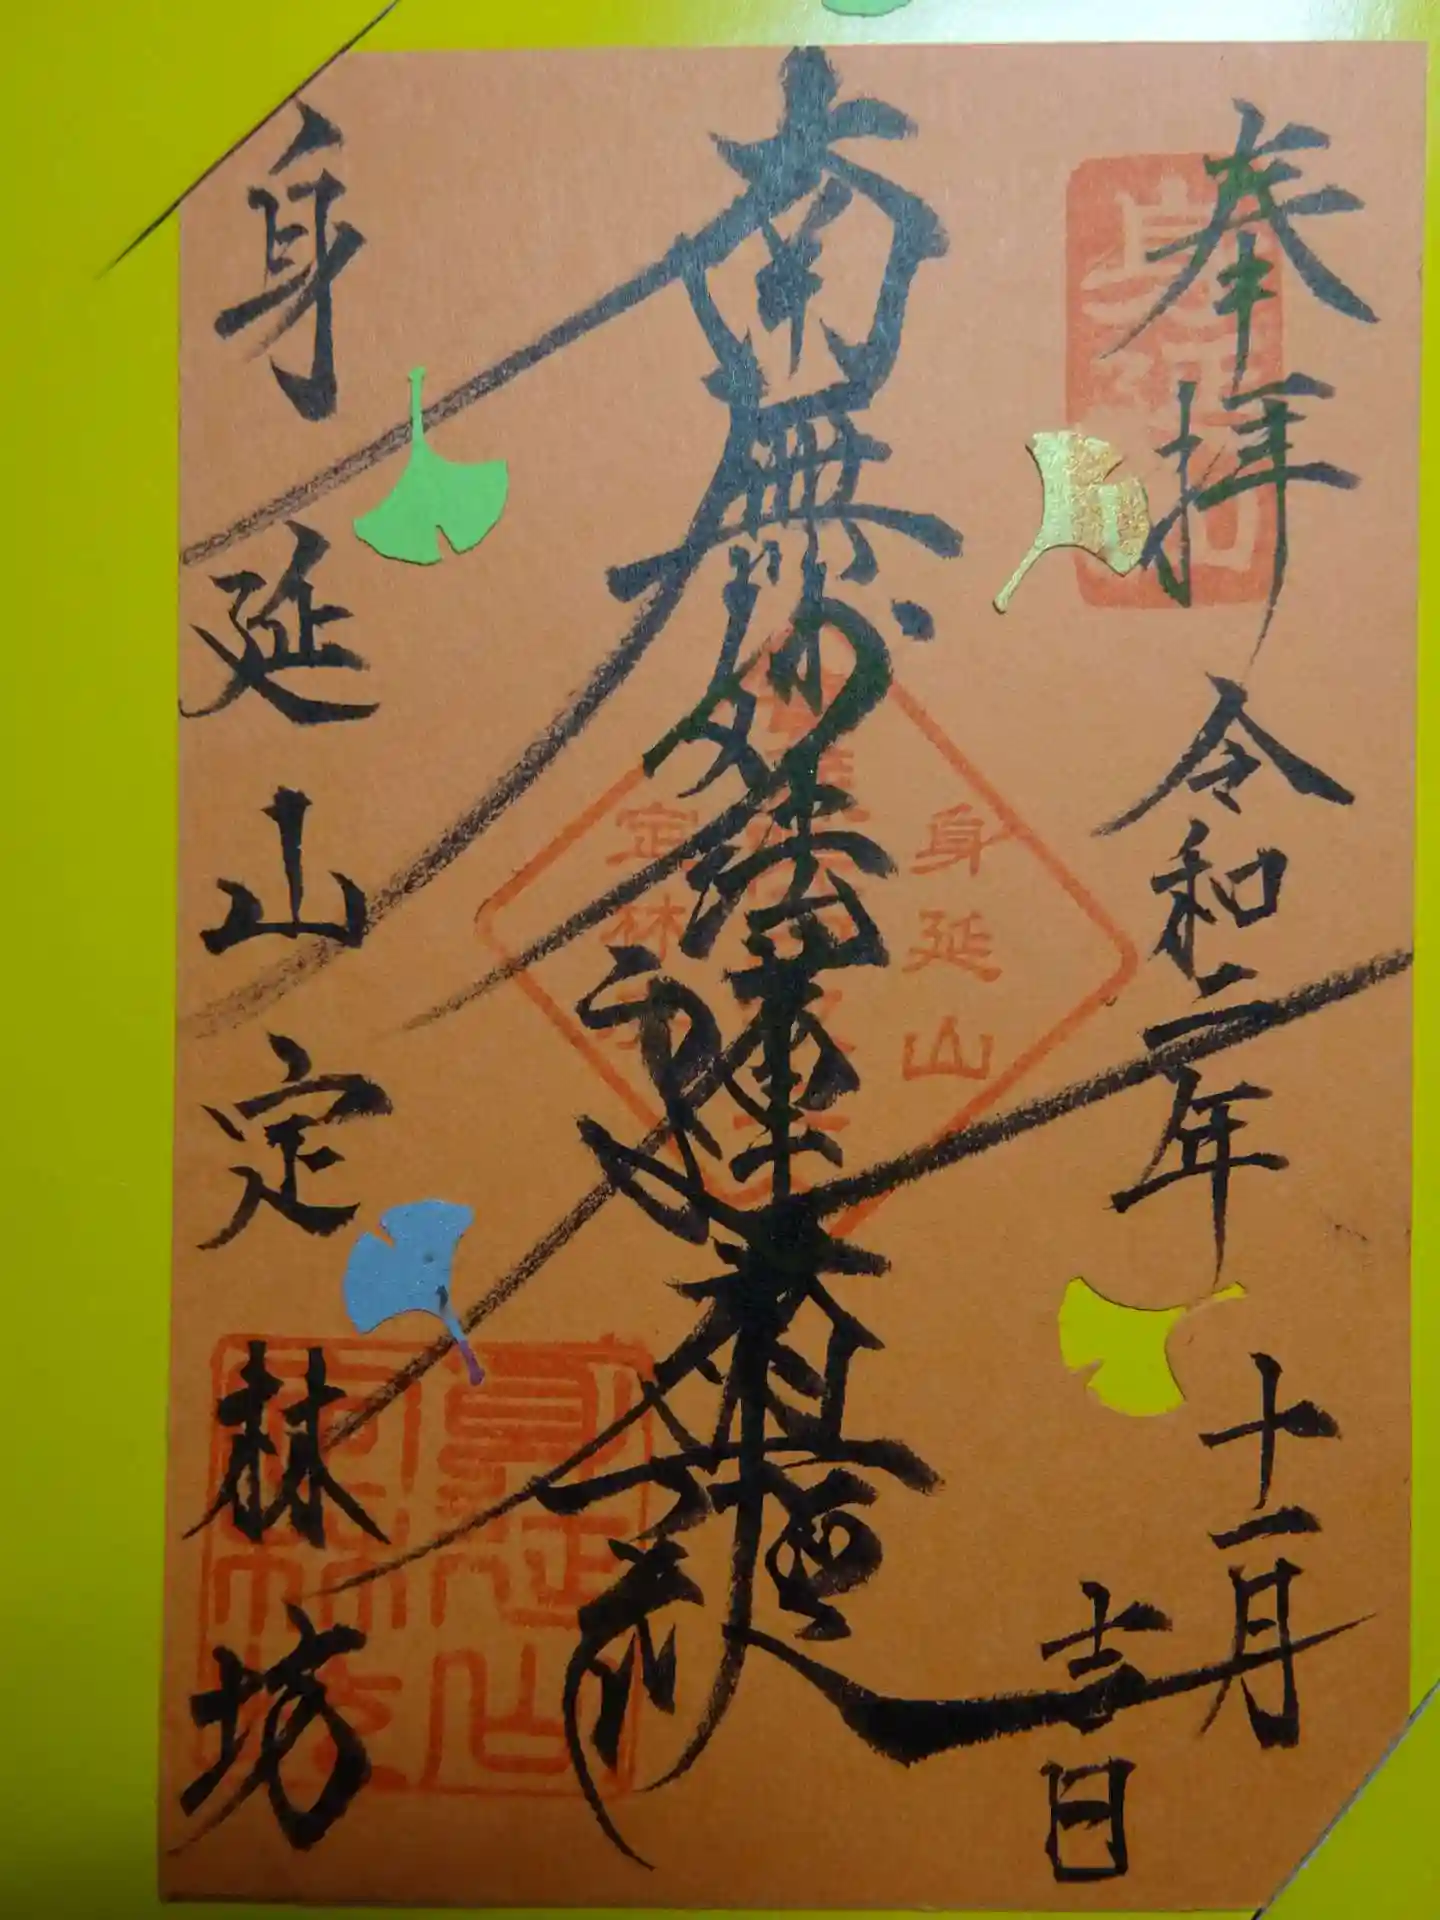 奉拝
令和二年
十一月
吉日
南無妙法蓮華経
身延山定林坊
身延山
定林坊